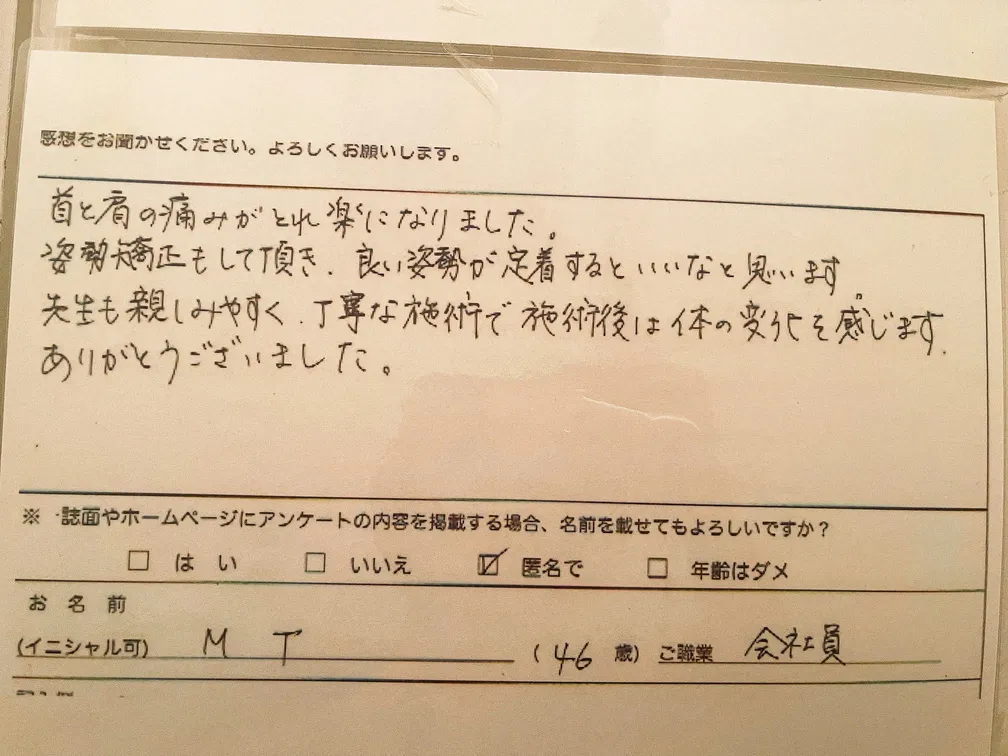 感想をお聞かせください。よろしくお願いします。
首と肩の痛みがとれ楽になりました。
姿勢矯正もして頂き、良い姿勢が定着するといいなと思います。
先生も親しみやすく、丁寧な施術で施術後は体の変化を感じます。
ありがとうございました。
※ 誌面やホームページにアンケートの内容を掲載する場合、名前を載せてもよろしいですか？
□ はい □ いいえ ☑ 匿名で □ 年齢はダメ
お名前
(イニシャル可) M T (46 歳) ご職業 会社員